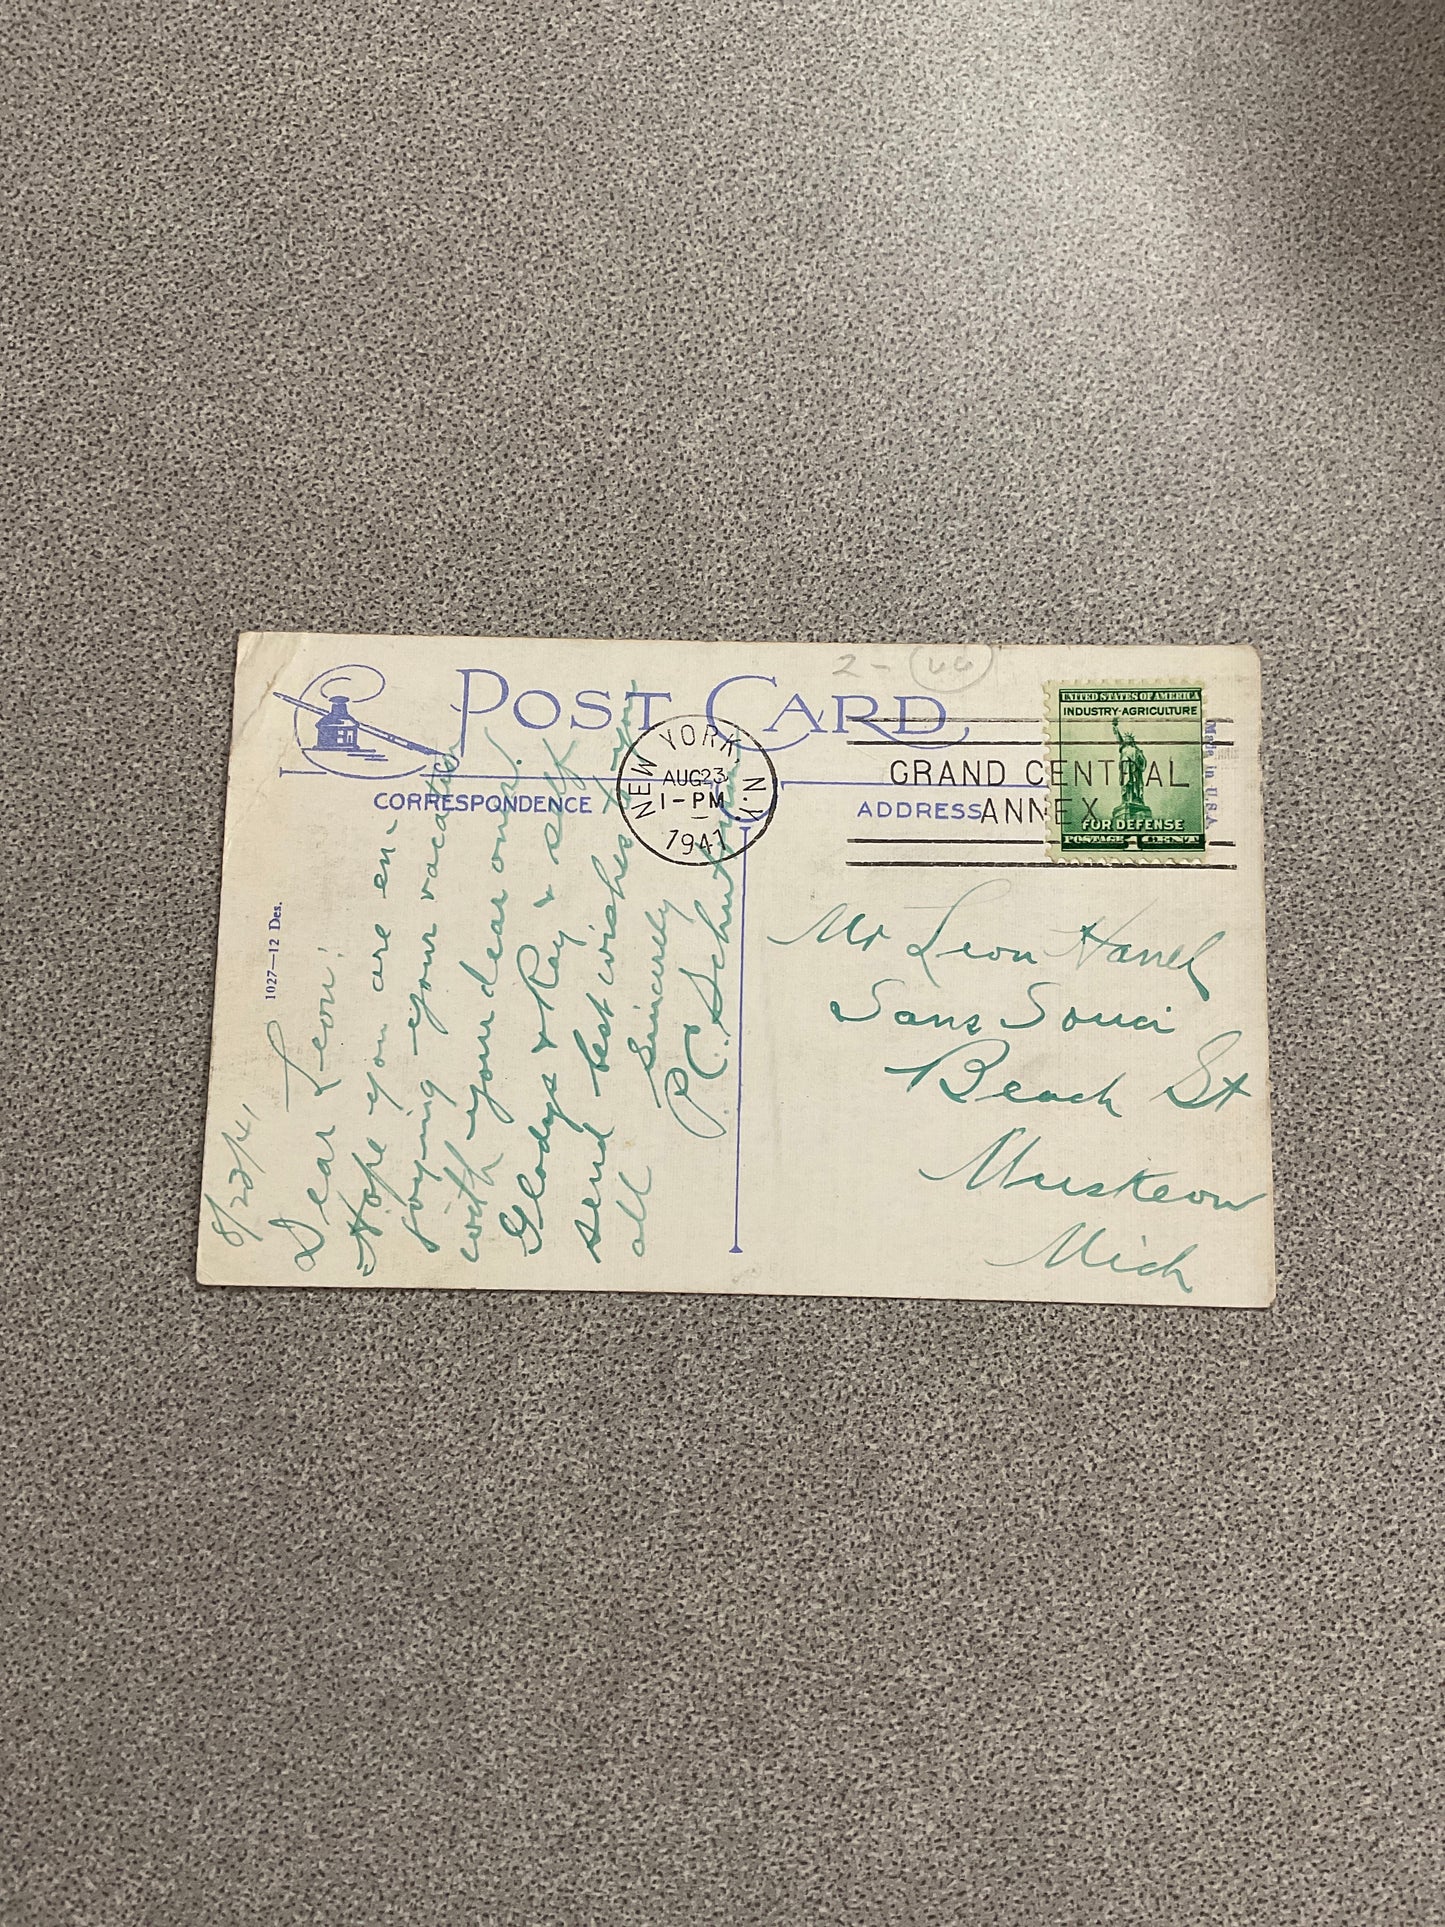 POST CARD
CORRESPONDENCE
ADDRESS
2 -
NEW YORK, N.Y.
AUG 23
1 - PM
1941
GRAND CENTRAL
ANNEX
UNITED STATES OF AMERICA
INDUSTRY·AGRICULTURE
FOR DEFENSE
POSTAGE 1 CENT
Made in U.S.A.
1027—12 Des.
8/23/41
Dear Leon:
Hope you are en-
joying your vacation
with your dear ones.
Gladys & Ray & self
send best wishes to you
all
Sincerely
P.C.
Mr Leon
Sans Souci
Beach St
Muskeon
Mich